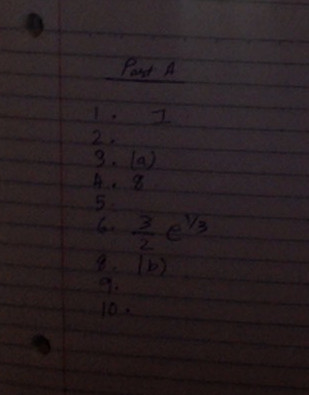 Part A
1. I
2.
3. (a)
4. 8
5.
6. 3/2 e^1/3
8. (b)
9.
10.